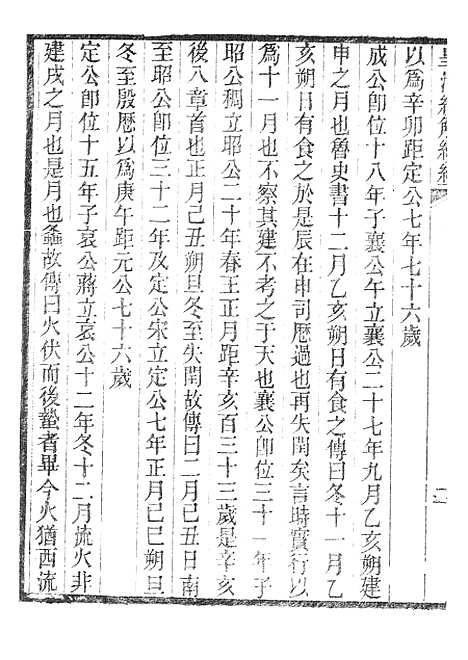 皇清經解續編
以爲辛卯距定公七年七十六歲
成公卽位十八年子襄公午立襄公二十七年九月乙亥朔建
申之月也魯史書十二月乙亥朔日有食之傳曰冬十一月乙
亥朔日有食之於是辰在申司歷過也再失閏矣言時實行以
爲十一月也不察其建不考之于天也襄公卽位三十一年子
昭公稠立昭公二十年春王正月距辛亥百三十三歲是辛亥
後八章首也正月己丑朔旦冬至失閏故傳曰二月己丑日南
至昭公卽位三十二年及定公宋立定公七年正月己巳朔旦
冬至殷歷以爲庚午距元公七十六歲
定公卽位十五年子哀公蔣立哀公十二年冬十二月流火非
建戌之月也是月也螽故傳曰火伏而後蟄者畢今火猶西流